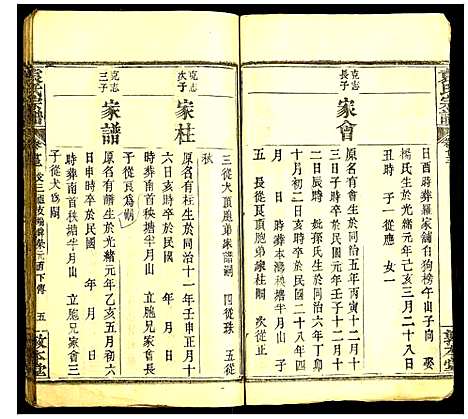 日酉時葬羅家舖白狗榜午山子向 娶
楊氏生於光緒元年乙亥三月二十八日
丑時 子一從應 女一
克志
長子
家會
原名有會生於同治五年丙寅十一月十
一日子時卒於民國元年壬子十二月十
二日辰時 妣孫氏生於同治六年卯
十月初二日亥時卒於民國二十八年四
月 日 時葬本灣秧塘半月山 子
五 長從良頂胞弟家柱嗣 次從正
三從犬頂胞弟家譜嗣 四從珠 五從
秋
克志
次子
家柱
原名有柱生於同治十一年壬申正月十
六日亥時卒於民國 年 月 日
時葬南首秧塘半月山 立胞兄家會長
子從良為嗣
克志
三子
家譜
原名有譜生於光緒元年乙亥五月初六
日申時卒於民國 年 月 日
時葬南首秧塘半月山 立胞兄家會三
子從犬為嗣
袁氏宗譜
五
敦本堂